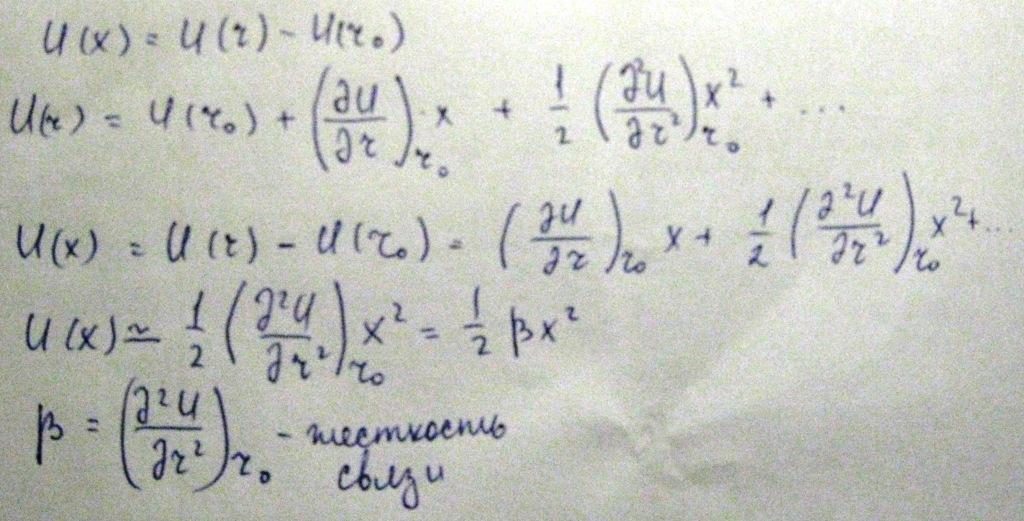 U(x) = U(r) - U(r₀)
U(r) = U(r₀) + (∂U/∂r)r₀ · x + 1/2 (∂²U/∂r²)r₀ x² + ...
U(x) = U(r) - U(r₀) = (∂U/∂r)r₀ x + 1/2 (∂²U/∂r²)r₀ x² + ...
U(x) ≃ 1/2 (∂²U/∂r²)r₀ x² = 1/2 βx²
β = (∂²U/∂r²)r₀ - жесткость
связи